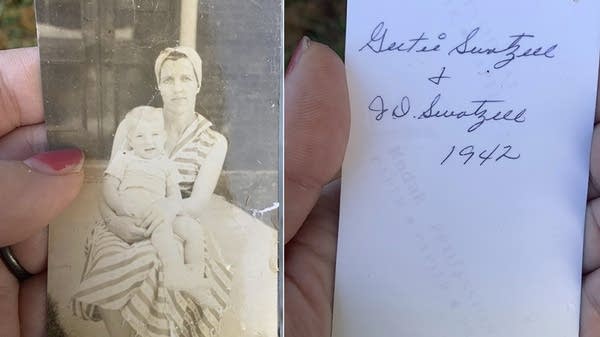 Gertie Swatzell
&
J D. Swatzell
1942
Kodak